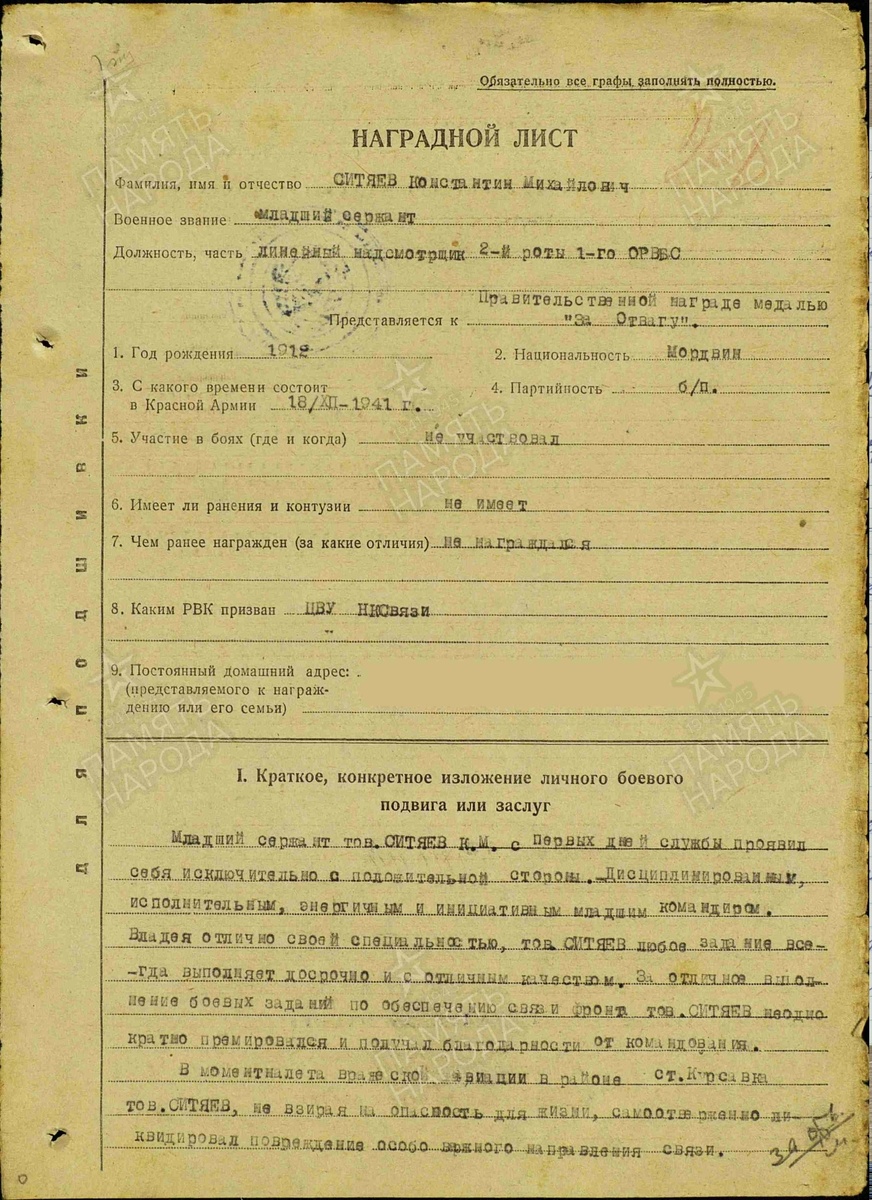 Обязательно все графы заполнять полностью.
НАГРАДНОЙ ЛИСТ
Фамилия, имя и отчество СИТЯЕВ Константин Михайлович
Военное звание Младший сержант
Должность, часть линейный надсмотрщик 2-й роты 1-го ОРВБС
Правительственной награде медалью
Представляется к "За Отвагу".
1. Год рождения 1912 2. Национальность Мордвин
3. С какого времени состоит 4. Партийность б/п.
в Красной Армии 18/XII-1941 г.
5. Участие в боях (где и когда) не участвовал
6. Имеет ли ранения и контузии не имеет
7. Чем ранее награжден (за какие отличия) не награждался
8. Каким РВК призван ЦВУ НКСвязи
9. Постоянный домашний адрес:
(представляемого к награж-
дению или его семьи)
I. Краткое, конкретное изложение личного боевого
подвига или заслуг
Младший сержант тов.СИТЯЕВ К.М. с первых дней службы проявил
себя исключительно с положительной стороны. Дисциплинированным,
исполнительным, энергичным и инициативным младшим командиром.
Владея отлично своей специальностью, тов.СИТЯЕВ любое задание все-
-гда выполняет досрочно и с отличным качеством. За отличное выпол-
нение боевых заданий по обеспечению связи фронта тов.СИТЯЕВ неодно
кратно премировался и получал благодарности от командования.
В момент налета вражеской авиации в районе ст.Курсавка
тов.СИТЯЕВ, не взирая на опасность для жизни, самоотверженно ли-
квидировал повреждение особо важного направления связи.
Для подшивки
ПАМЯТЬ
НАРОДА
ПАМЯТЬ
НАРОДА
ПАМЯТЬ
НАРОДА
ПАМЯТЬ
НАРОДА
ПАМЯТЬ
НАРОДА